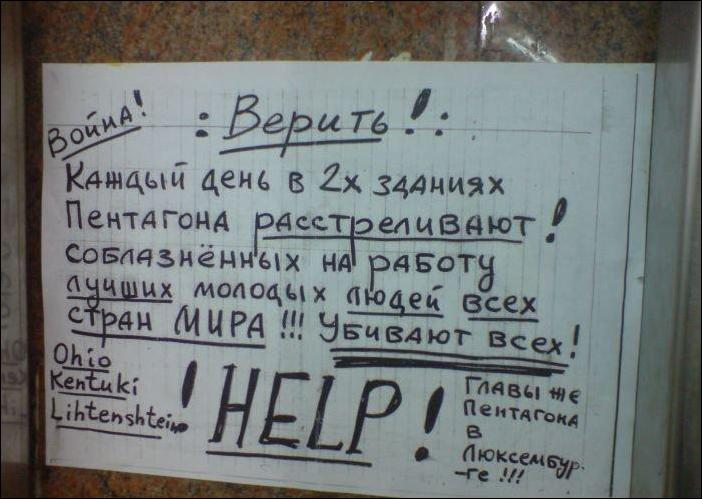 Война!
: Верить!:
Каждый день в 2х зданиях
Пентагона расстреливают!
соблазнённых на работу
лучших молодых людей всех
стран МИРА!!! Убивают всех!
Ohio
Kentuki
Lihtenshtein
! HELP!
Главы же
Пентагона
в
Люксембур-
-ге!!!